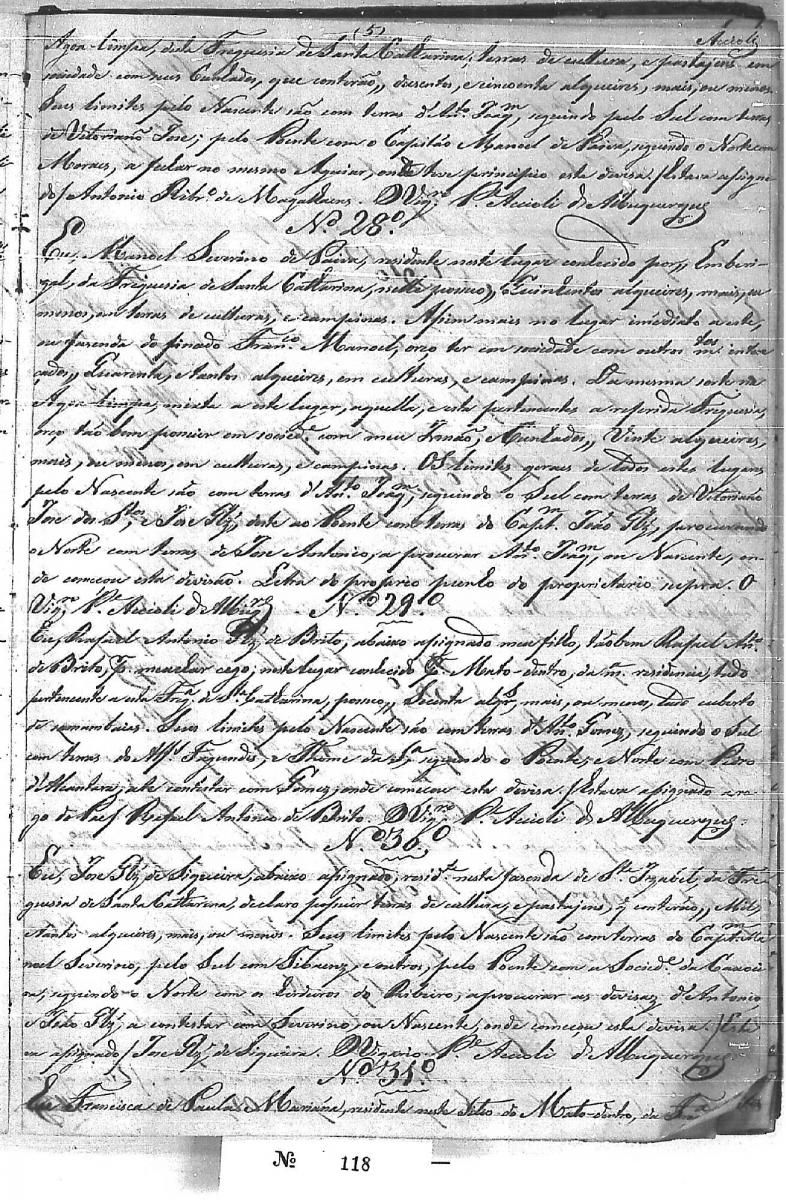 (5) Accioli
Agoa-limpa, desta Freguesia de Santa Catharina; terras de cultura, e pastajens em
sociedade com seus Cunhados, que conterão,, duzentos, e cincoenta alqueires, mais, ou menos.
Seus limites pelo Nascente são com terras d'Anto. Joaqm., seguindo pelo Sul com terras
de Vitoriano Jose; pelo Poente com o Capitão Manoel de Paiva, seguindo o Norte com
Moraes, a fechar no mesmo Aguiar, onde teve principio esta devisa. /Estava assigna
do/ Antonio Ribro. de Magalhaens. O Vigro. Pe. Accioli d'Albuquerque
No. 28.o
Eu, Manoel Severino de Paiva, residente neste lugar conhecido por,, Emberi-
zal, da Freguesia de Santa Catharina, nelle possuo,, Quinhentos alqueires, mais, ou
menos, em terras de culturas, e campinas. Assim mais no lugar imediato a este,
ou fazenda do finado Franco. Manoel, orço ter em sociedade com outros tos. mtos.
çados,, Quarenta, e tantos alqueires, em culturas, e campinas. Da mesma sorte na
Agoa-limpa, mixta a este lugar, aquella, e esta pertencentes a referida Freguesia,
orço tão bem possuir em sociede. com meu Irmão, e Cunhados,, Vinte alqueires,
mais, ou menos, em culturas, e campinas. Os limites geraes de todos estes lugares
pelo Nascente são com terras d'Anto. Joaqm., seguindo o Sul com terras de Vitoriano
Jose dos Stos., e Jose Glz', deste ao Poente com terras do Capm. João Glz', procurando
o Norte com terras de Jose Antonio, a procurar Anto. Joaqm., ou Nascente, on-
de começou esta devisão. Letra do proprio punho do proprietario supra. O
Vigro. Pe. Accioli d'Albuqe. No. 29.o
Eu, Rafael Antonio Glz' de Brito, abaixo assignado meu filho, tãobem Rafael Anto.
de Brito, p. me achar cego; neste lugar conhecido p. Mato-dentro, da m. residencia, tudo
pertencente a esta Fraga. de Sta. Catharina, possuo,, Secenta alqrs., mais, ou menos, tudo cuberto
de samambaias. Seus limites pelo Nascente são com terras d'Anto. Gomes, seguindo o Sul
com terras de Mel. Fagundes, e Thome da Sa. seguindo o Poente, e Norte com Pedro
d'Alcantara, ate contestar com Gomes, onde começou esta devisa. /Estava assignado a ro-
go do Pae/ Rafael Antonio de Brito. O Vigro. Pe. Accioli d'Albuquerque.
No. 30.o
Eu, Jose Glz' de Siqueira, abaixo assignado, reside. nesta fasenda de Sta. Izabel, da Fre-
guesia de Santa Catharina, declaro possuir terras de cultura, e pastajens, q' conterão,, Mil,
e tantos alqueires, mais, ou menos. Seus limites pelo Nascente são com terras do Capm. Ma-
noel Severino, pelo Sul com Tibaens, e outros, pelo Poente com a Sociede. da Caxoei-
ra, seguindo o Norte com os Erdeiros do Ribeiro, a procurar as devisas d'Antonio
e João Glz', a contestar com Severino, ou Nascente, onde começou esta devisa. /Esta
va assignado/ Jose Glz' de Siqueira. O Vigario Pe. Accioli d'Albuquerque.
No. 31.o
Eu Francisca de Paula Mariana, residente neste Sitio do Mato-dentro, da Fra.
No 118 —